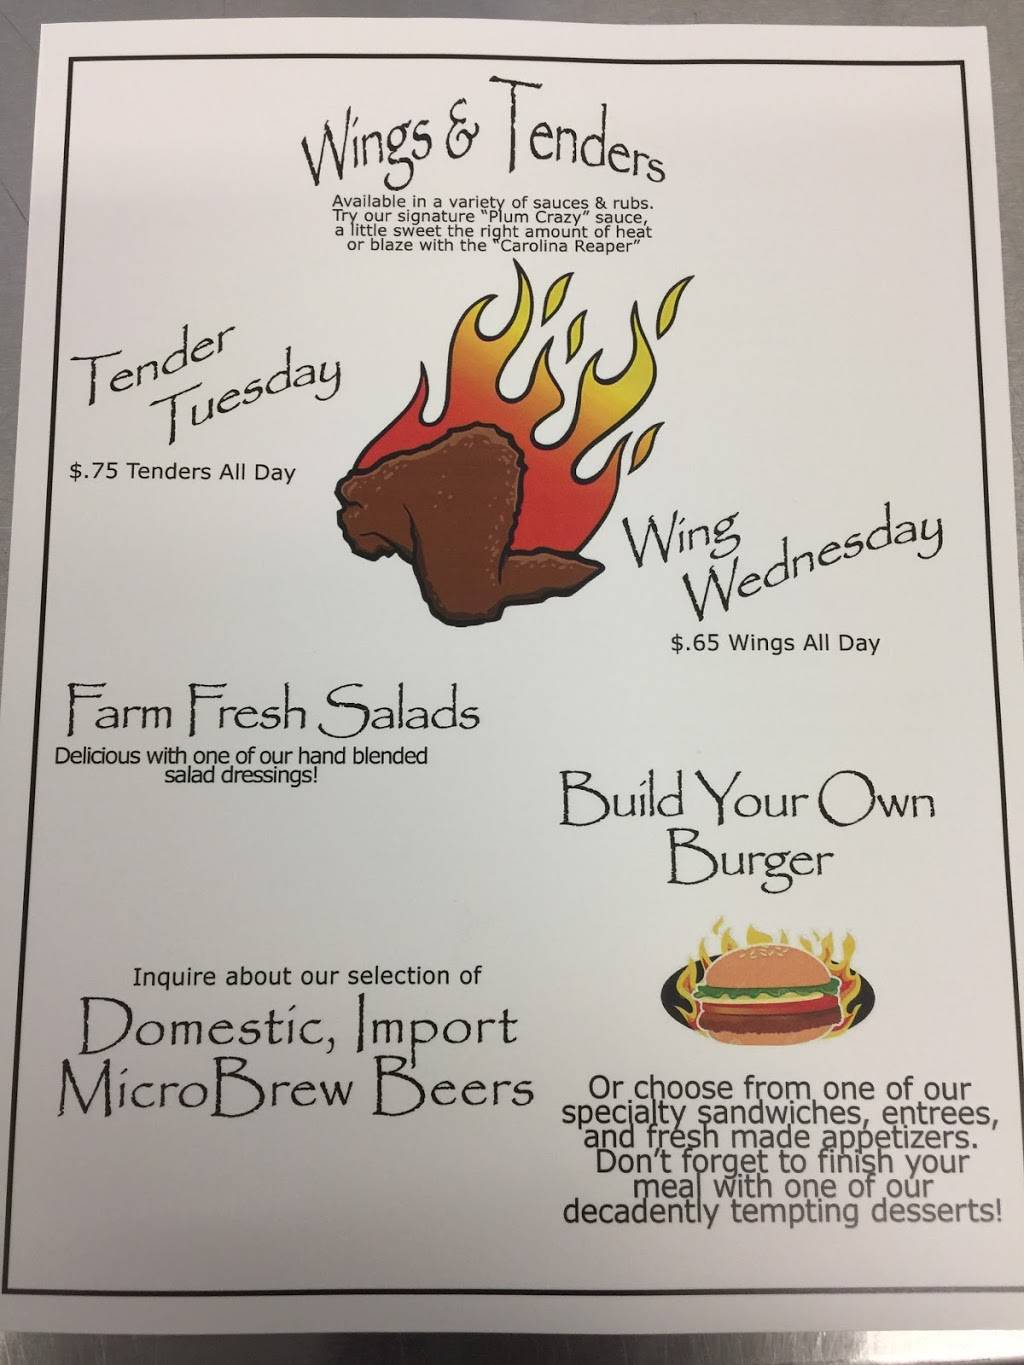 Wings & Tenders
Available in a variety of sauces & rubs.
Try our signature "Plum Crazy" sauce,
a little sweet the right amount of heat
or blaze with the "Carolina Reaper"
Tender
Tuesday
$.75 Tenders All Day
Wing
Wednesday
$.65 Wings All Day
Farm Fresh Salads
Delicious with one of our hand blended
salad dressings!
Build Your Own
Burger
Inquire about our selection of
Domestic, Import
MicroBrew Beers
Or choose from one of our
specialty sandwiches, entrees,
and fresh made appetizers.
Don't forget to finish your
meal with one of our
decadently tempting desserts!